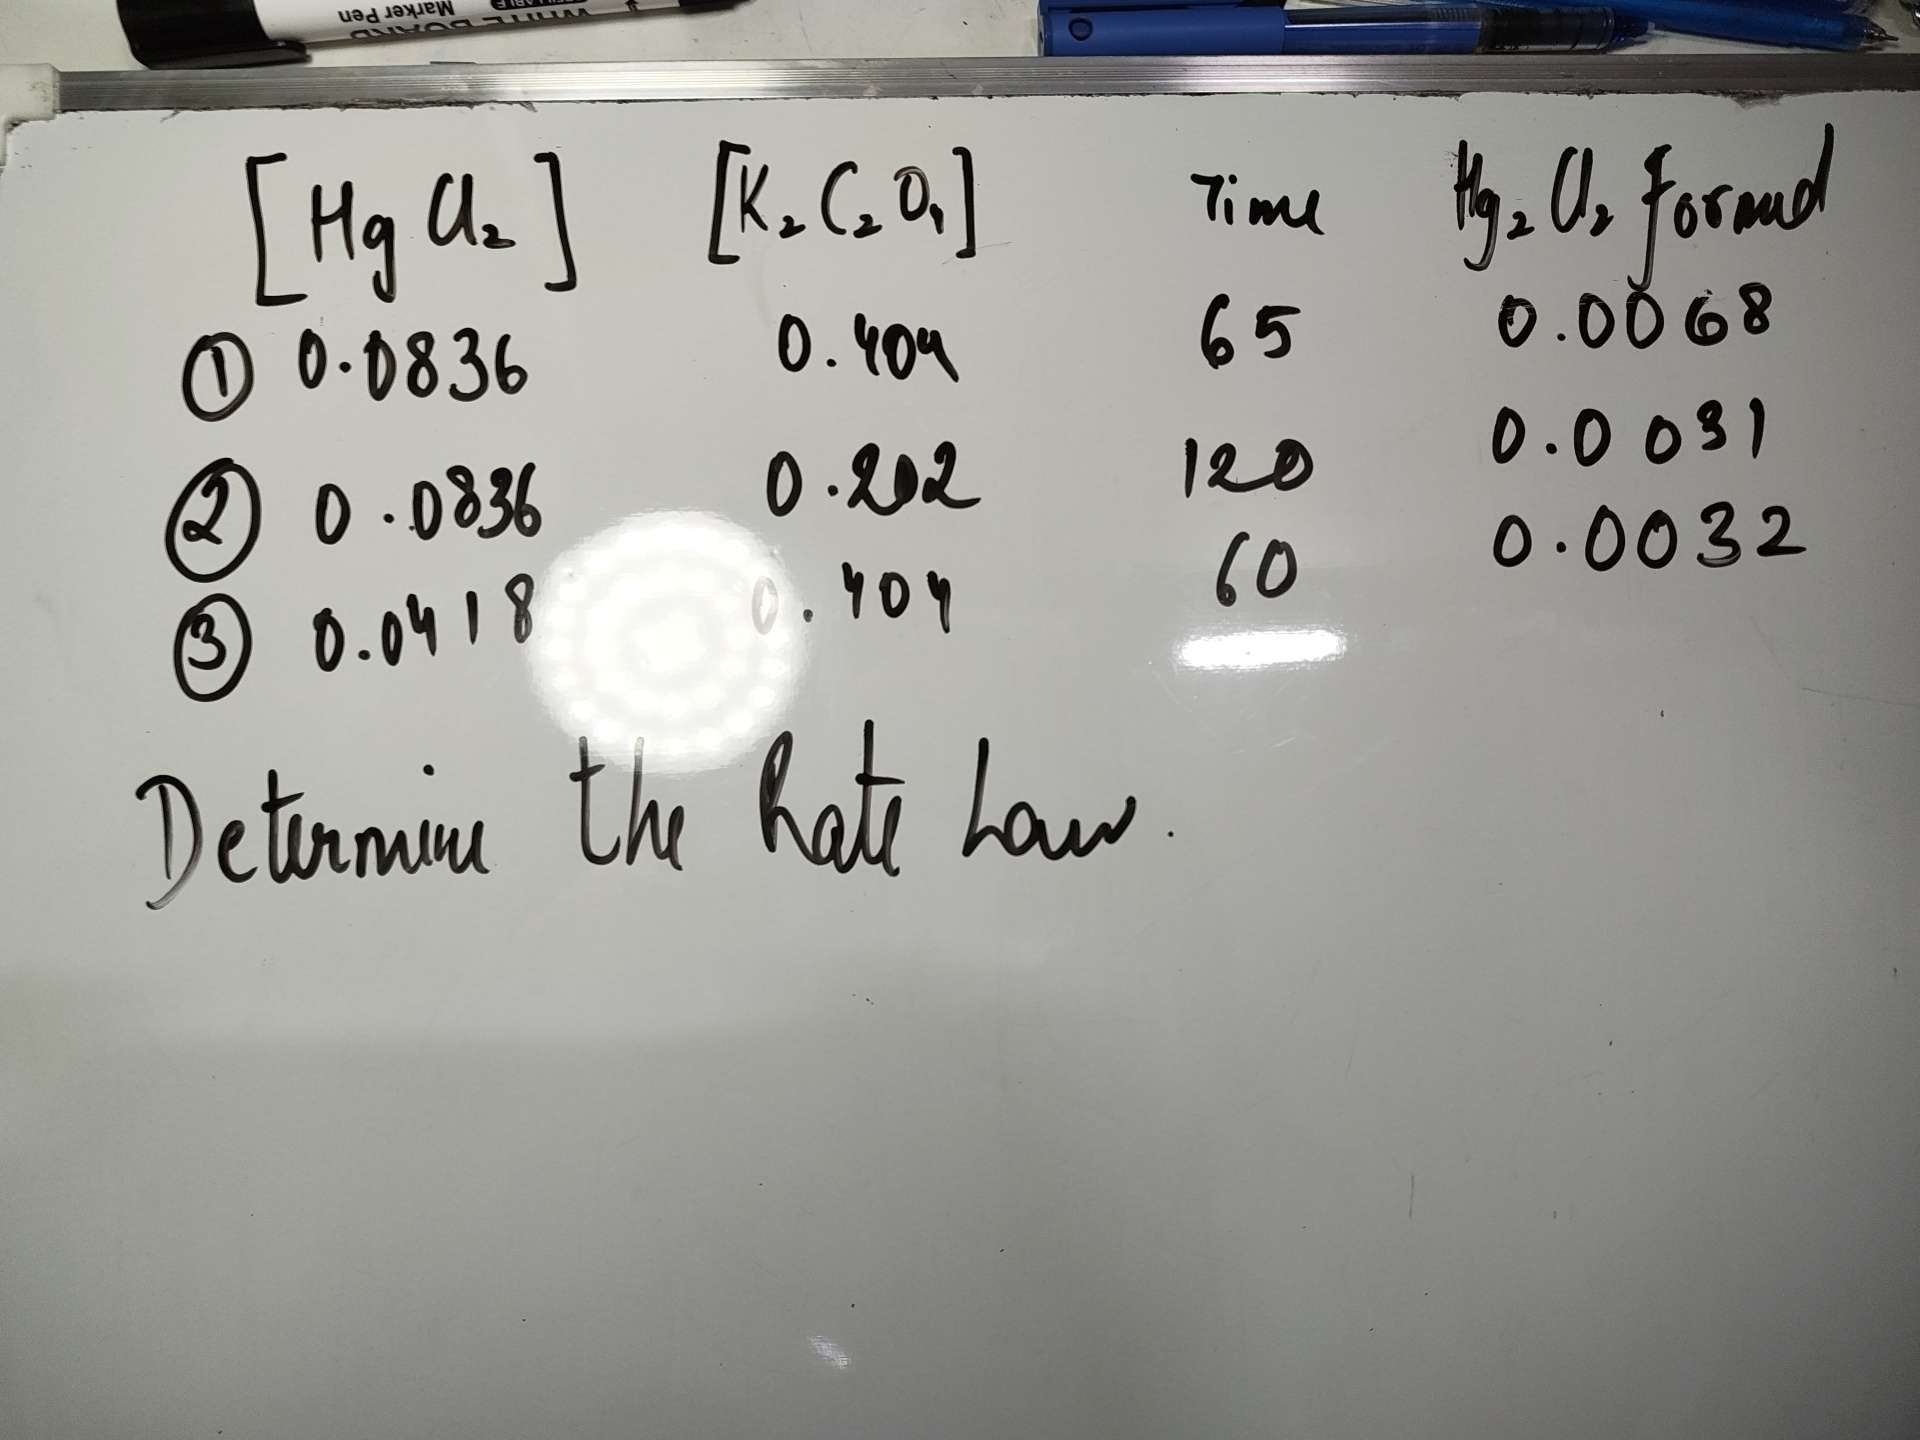 WHITE BOARD
Marker Pen
[HgCl₂] [K₂C₂O₄] Time Hg₂Cl₂ formed
① 0.0836 0.404 65 0.0068
② 0.0836 0.202 120 0.0031
③ 0.0418 0.404 60 0.0032
Determine the Rate Law.